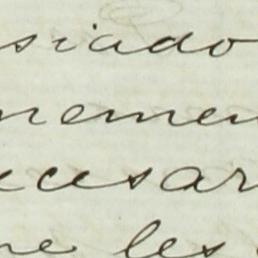 siado
nemen
ecesar
ne les